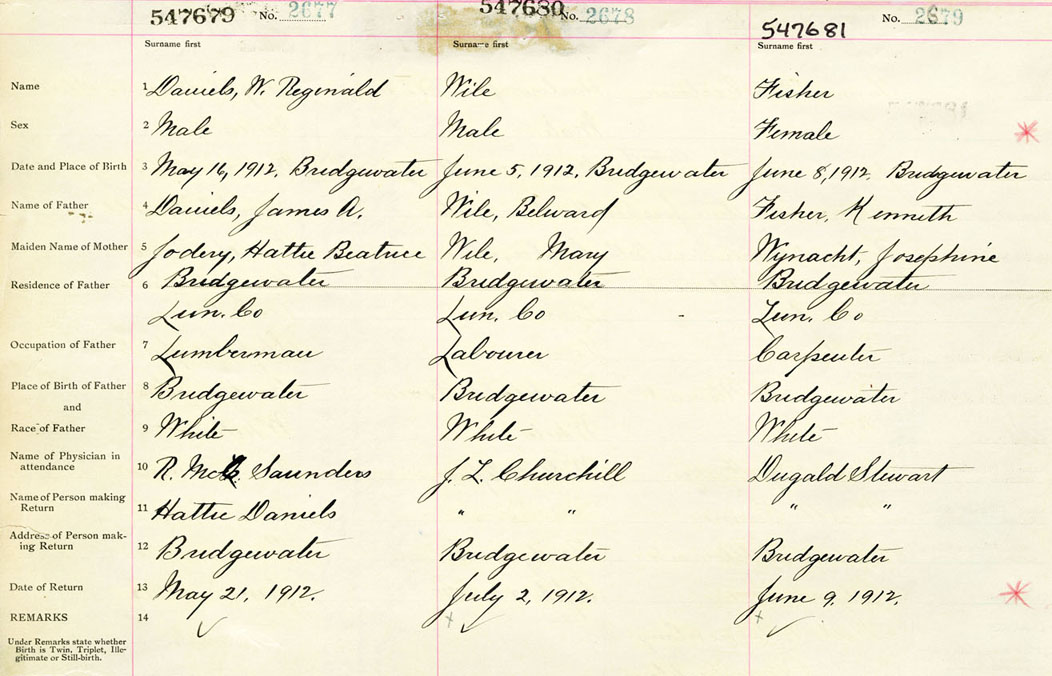 547679 No. 2677 547680 No. 2678 547681 No. 2679
Surname first Surname first Surname first
Name 1 Daniels, W. Reginald Wile Fisher
Sex 2 Male Male Female
Date and Place of Birth 3 May 16, 1912, Bridgewater June 5, 1912, Bridgewater June 8, 1912, Bridgewater
Name of Father 4 Daniels, James A. Wile, Belward Fisher, Kenneth
Maiden Name of Mother 5 Jodery, Hattie Beatrice Wile, Mary Wynacht, Josephine
Residence of Father 6 Bridgewater Bridgewater Bridgewater
Lun. Co Lun. Co Lun. Co
Occupation of Father 7 Lumberman Labourer Carpenter
Place of Birth of Father 8 Bridgewater Bridgewater Bridgewater
and
Race of Father 9 White White White
Name of Physician in
attendance 10 R. Saunders J. L. Churchill Dugald Stewart
Name of Person making
Return 11 Hattie Daniels " " " "
Address of Person mak-
ing Return 12 Bridgewater Bridgewater Bridgewater
Date of Return 13 May 21, 1912. July 2, 1912. June 9, 1912.
REMARKS 14
Under Remarks state whether
Birth is Twin, Triplet, Ille-
gitimate or Still-birth.